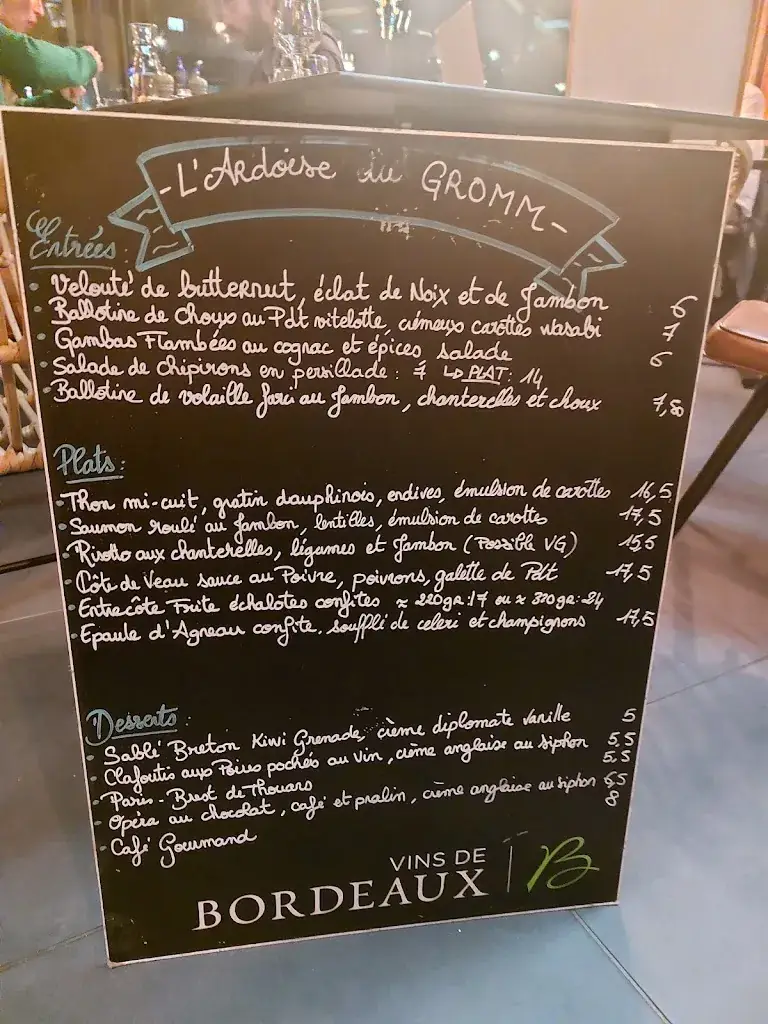 -L'ARdoise du GROMM-
Entrées:
• Velouté de butternut, éclat de Noix et de Jambon 6
• Ballotine de Choux au Pdt vitelotte, crémeux carottes wasabi 7
• Gambas Flambées au cognac et épices, salade 6
• Salade de chipirons en persillade : 7 ↳ PLAT: 14
• Ballotine de volaille farci au Jambon, chanterelles et choux 7,50
Plats:
• Thon mi-cuit, gratin dauphinois, endives, émulsion de carottes 16,5
• Saumon roulé au Jambon, lentilles, émulsion de carotte 17,5
• Risotto aux chanterelles, légumes et Jambon (Possible VG) 15,5
• Côte de Veau sauce au Poivre, poivrons, galette de Pdt 17,5
• Entrecôte Frite échalotes confites ≈ 220gr:17 ou ≈ 320gr:24
• Epaule d'Agneau confite, soufflé de celeri et champignons 17,5
Desserts:
• Sablé Breton Kiwi Grenade, crème diplomate vanille 5
• Clafoutis aux Poires pochés au vin, crème anglaise au siphon 5,5
• Paris-Brest de Thouars 5,5
• Opéra au chocolat, café et pralin, crème anglaise au siphon 6,5
• Café Gourmand 8
VINS DE
BORDEAUX | B